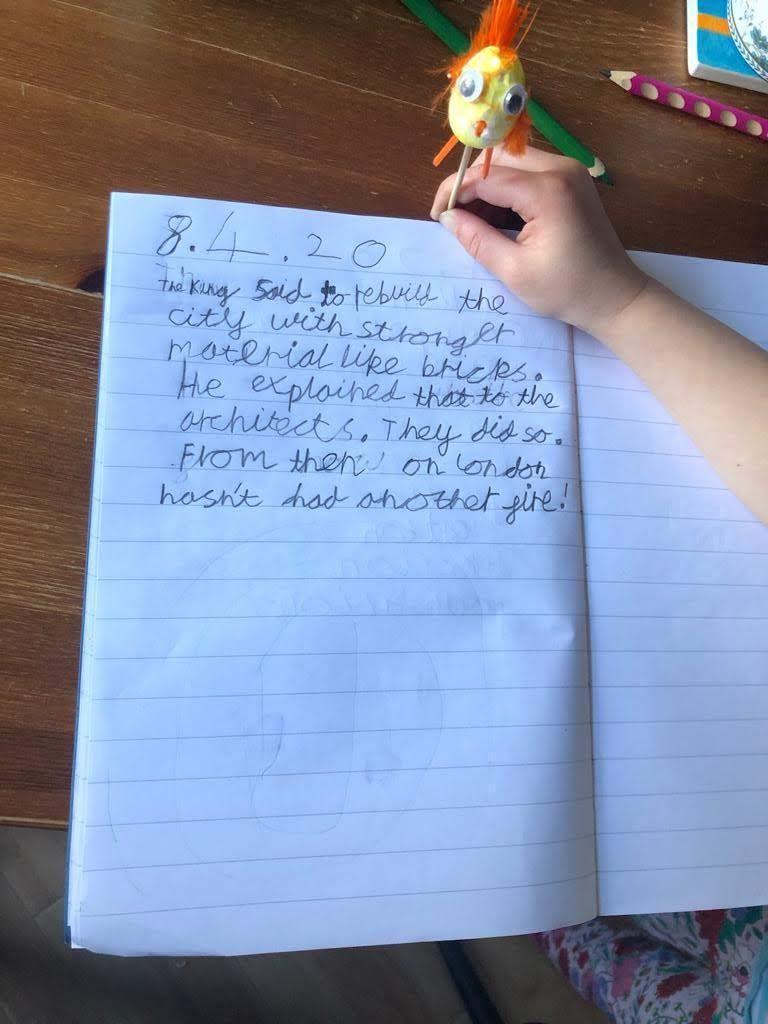 8.4.20
The King said to rebuild the
city with stronger
material like bricks.
He explained that to the
architects. They did so.
From then on London
hasn't had another fire!